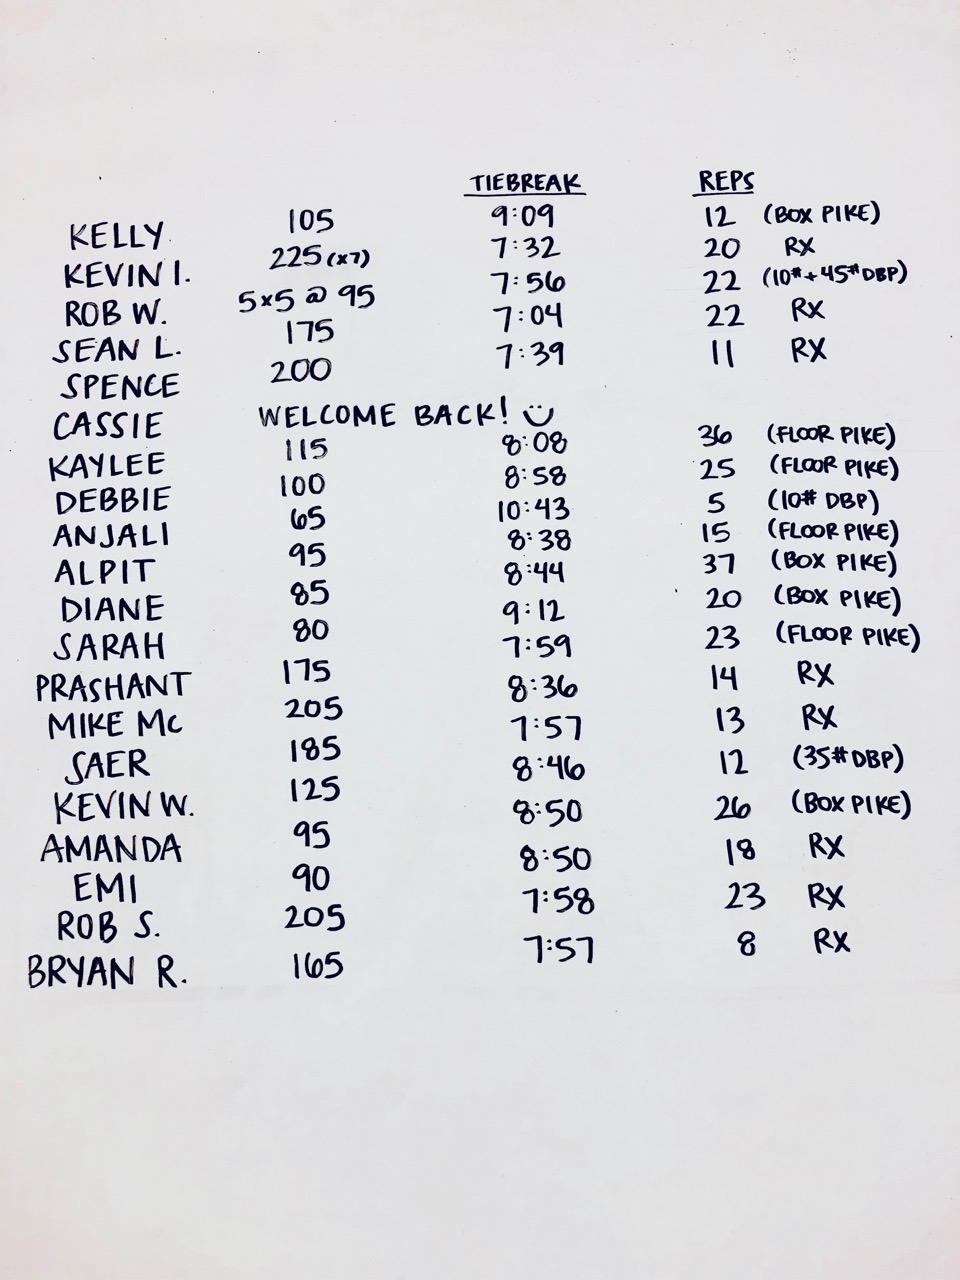 TIEBREAK REPS
KELLY 105 9:09 12 (BOX PIKE)
KEVIN I. 225 (x7) 7:32 20 RX
ROB W. 5x5 @ 95 7:56 22 (10# + 45# DBP)
SEAN L. 175 7:04 22 RX
SPENCE 200 7:39 11 RX
CASSIE WELCOME BACK! :)
KAYLEE 115 8:08 36 (FLOOR PIKE)
DEBBIE 100 8:58 25 (FLOOR PIKE)
ANJALI 65 10:43 5 (10# DBP)
ALPIT 95 8:38 15 (FLOOR PIKE)
DIANE 85 8:44 37 (BOX PIKE)
SARAH 80 9:12 20 (BOX PIKE)
PRASHANT 175 7:59 23 (FLOOR PIKE)
MIKE MC 205 8:36 14 RX
SAER 185 7:57 13 RX
KEVIN W. 125 8:46 12 (35# DBP)
AMANDA 95 8:50 26 (BOX PIKE)
EMI 90 8:50 18 RX
ROB S. 205 7:58 23 RX
BRYAN R. 165 7:57 8 RX